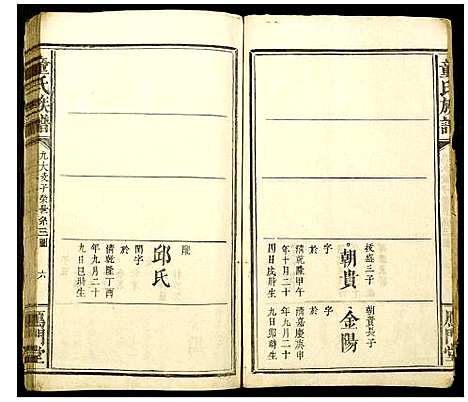 童氏族譜
鴈門堂
拔盛三子
朝貴
字
於
清乾隆甲午
年十月二十
四日戌時生
朝貴長子
金陽
字
於
清嘉慶庚申
年九月二十
九日卯時生
配
邱氏
閏字
於
清乾隆丁酉
年九月二十
九日巳時生
童氏族譜
九大支子榮長系三圖
六
鴈門堂